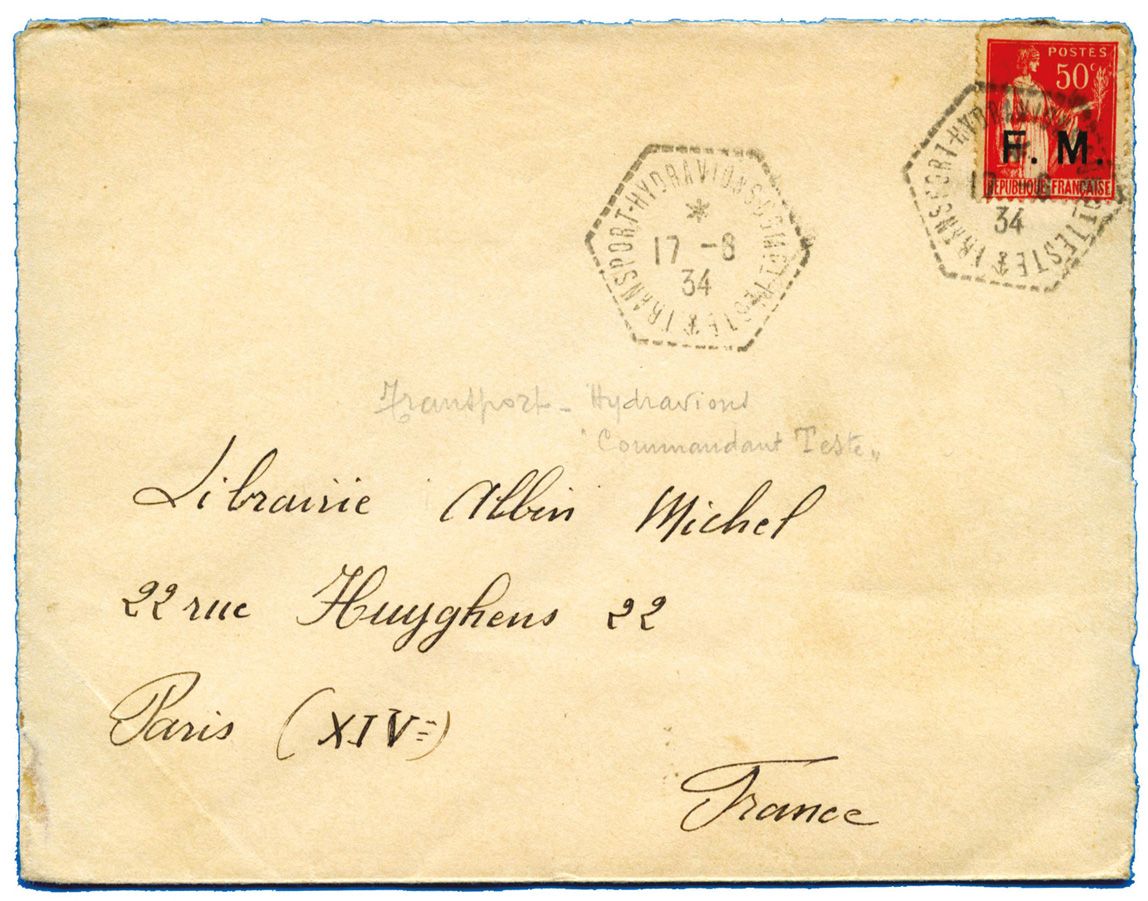 POSTES
50c
F. M.
RÉPUBLIQUE FRANÇAISE
TRANSPORT-HYDRAVIONS CDT TESTE
*
17 -8
34
TRANSPORT-HYDRAVIONS TESTE
17 -8
34
Transport - Hydravions
"Commandant Teste"
Librairie Albin Michel
22 rue Huyghens 22
Paris (XIVe)
France